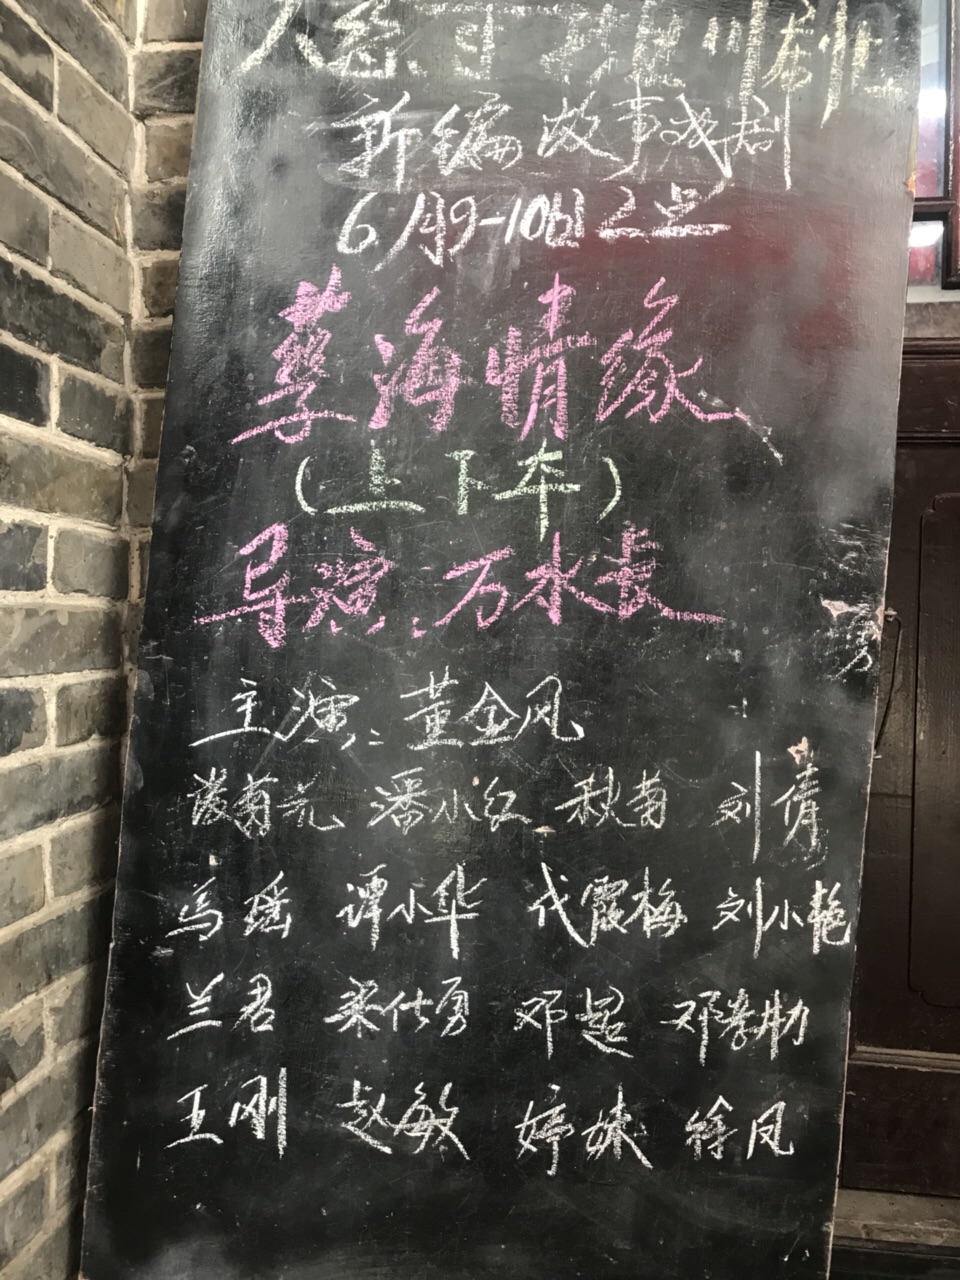 新编故事戏剧
6月9-10日2点
孽海情缘
(上下本)
导演:万水长
主演:董金凤
菊元 潘小红 秋菊 刘倩
马瑶 谭小华 代霞梅 刘小艳
兰君 梁仕勇 邓超 邓孝勋
王刚 赵敏 婷妹 徐凤